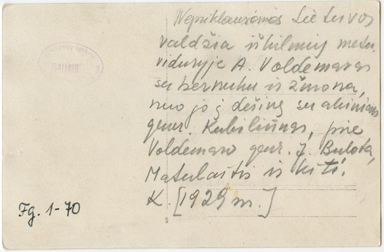 Nepriklausomos Lietuvos
valdžia iškilmių metu
viduryje A. Voldemaras
su berneliu ir žmona,
nuo jo į dešinę su akiniais
gen. Kubiliūnas, prie
Voldemaro gen. J. Bulota,
Matulaitis ir kiti.
K. [1929 m.]
Fg. 1-70